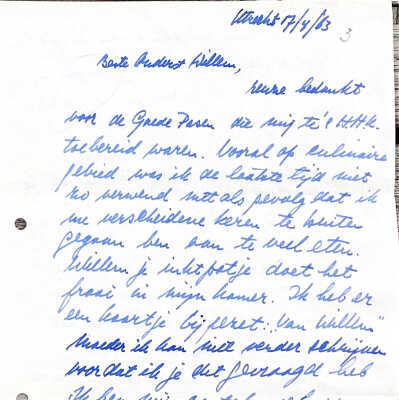 Utrecht 17/4/63
3
Beste Ouders + Willem,
reuze bedankt
voor de Goede Pasen die mij te's H.H.K.
toebereid waren. Vooral op culinaire
gebied was ik de laatste tijd niet
zo verwend met als gevolg dat ik
me verscheidene keren te buiten
gegaan ben aan te veel eten.
Willem je inktpotje doet het
fraai in mijn kamer. Ik heb er
een kaartje bij gezet: "Van Willem"
Moeder ik kan niet verder schrijven
voordat ik je dit gevraagd heb
Ik ben